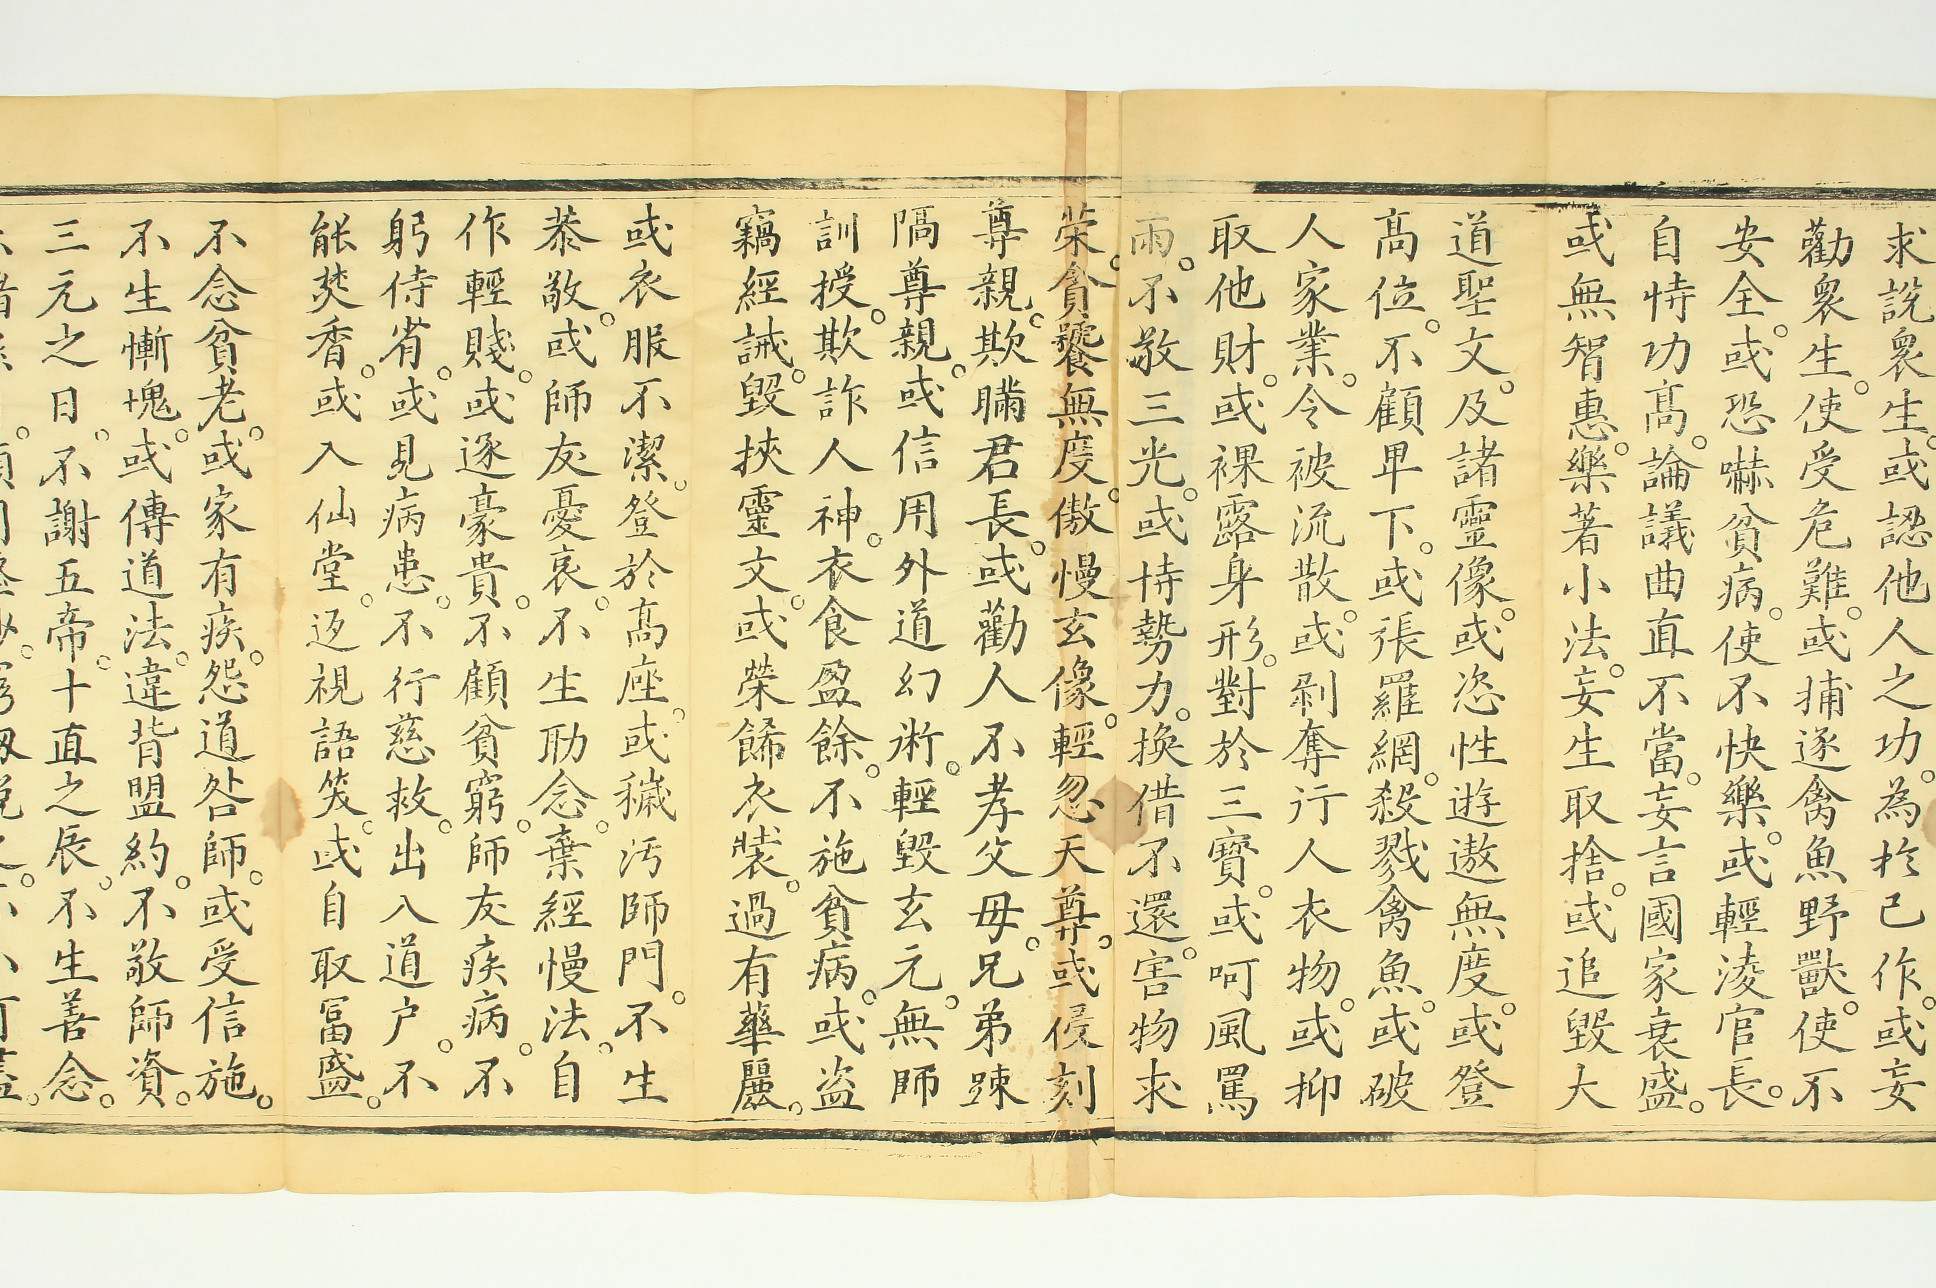 求說衆生。或認他人之功。為扵已作。或妄
勸衆生。使受危難。或捕逐禽魚野獸。使不
安全。或恐嚇貧病。使不快樂。或輕淩官長。
自恃功髙。論議曲直不當。妄言國家衰盛。
或無智惠。樂著小法。妄生取捨。或追毀大
道聖文。及諸靈像。或恣性遊遨無度。或登
髙位。不顧卑下。或張羅網。殺戮禽魚。或破
人家業。令被流散。或剝奪行人衣物。或抑
取他財。或裸露身形。對於三寳。或呵風罵
雨。不敬三光。或恃勢力。換借不還。害物求
榮。貪饕無度。傲慢玄像。輕忽天尊。或侵刻
尊親。欺瞞君長。或勸人不孝父母。兄弟踈
隔尊親。或信用外道幻術。輕毀玄元。無師
訓授。欺詐人神。衣食盈餘。不施貧病。或盗
竊經誡。毀挾靈文。或榮餙衣裝。過有華麗。
或衣服不潔。登於髙座。或穢污師門。不生
恭敬。或師友憂哀。不生助念。棄經慢法。自
作輕賤。或逐豪貴。不顧貧窮。師友疾病。不
躬侍省。或見病患。不行慈救。出入道户。不
能焚香。或入仙堂。返視語笑。或自取富盛。
不念貧老。或家有疾。怨道咎師。或受信施。
不生慚愧。或傳道法。違背盟約。不敬師資。
三元之日。不謝五帝。十直之辰。不生善念。